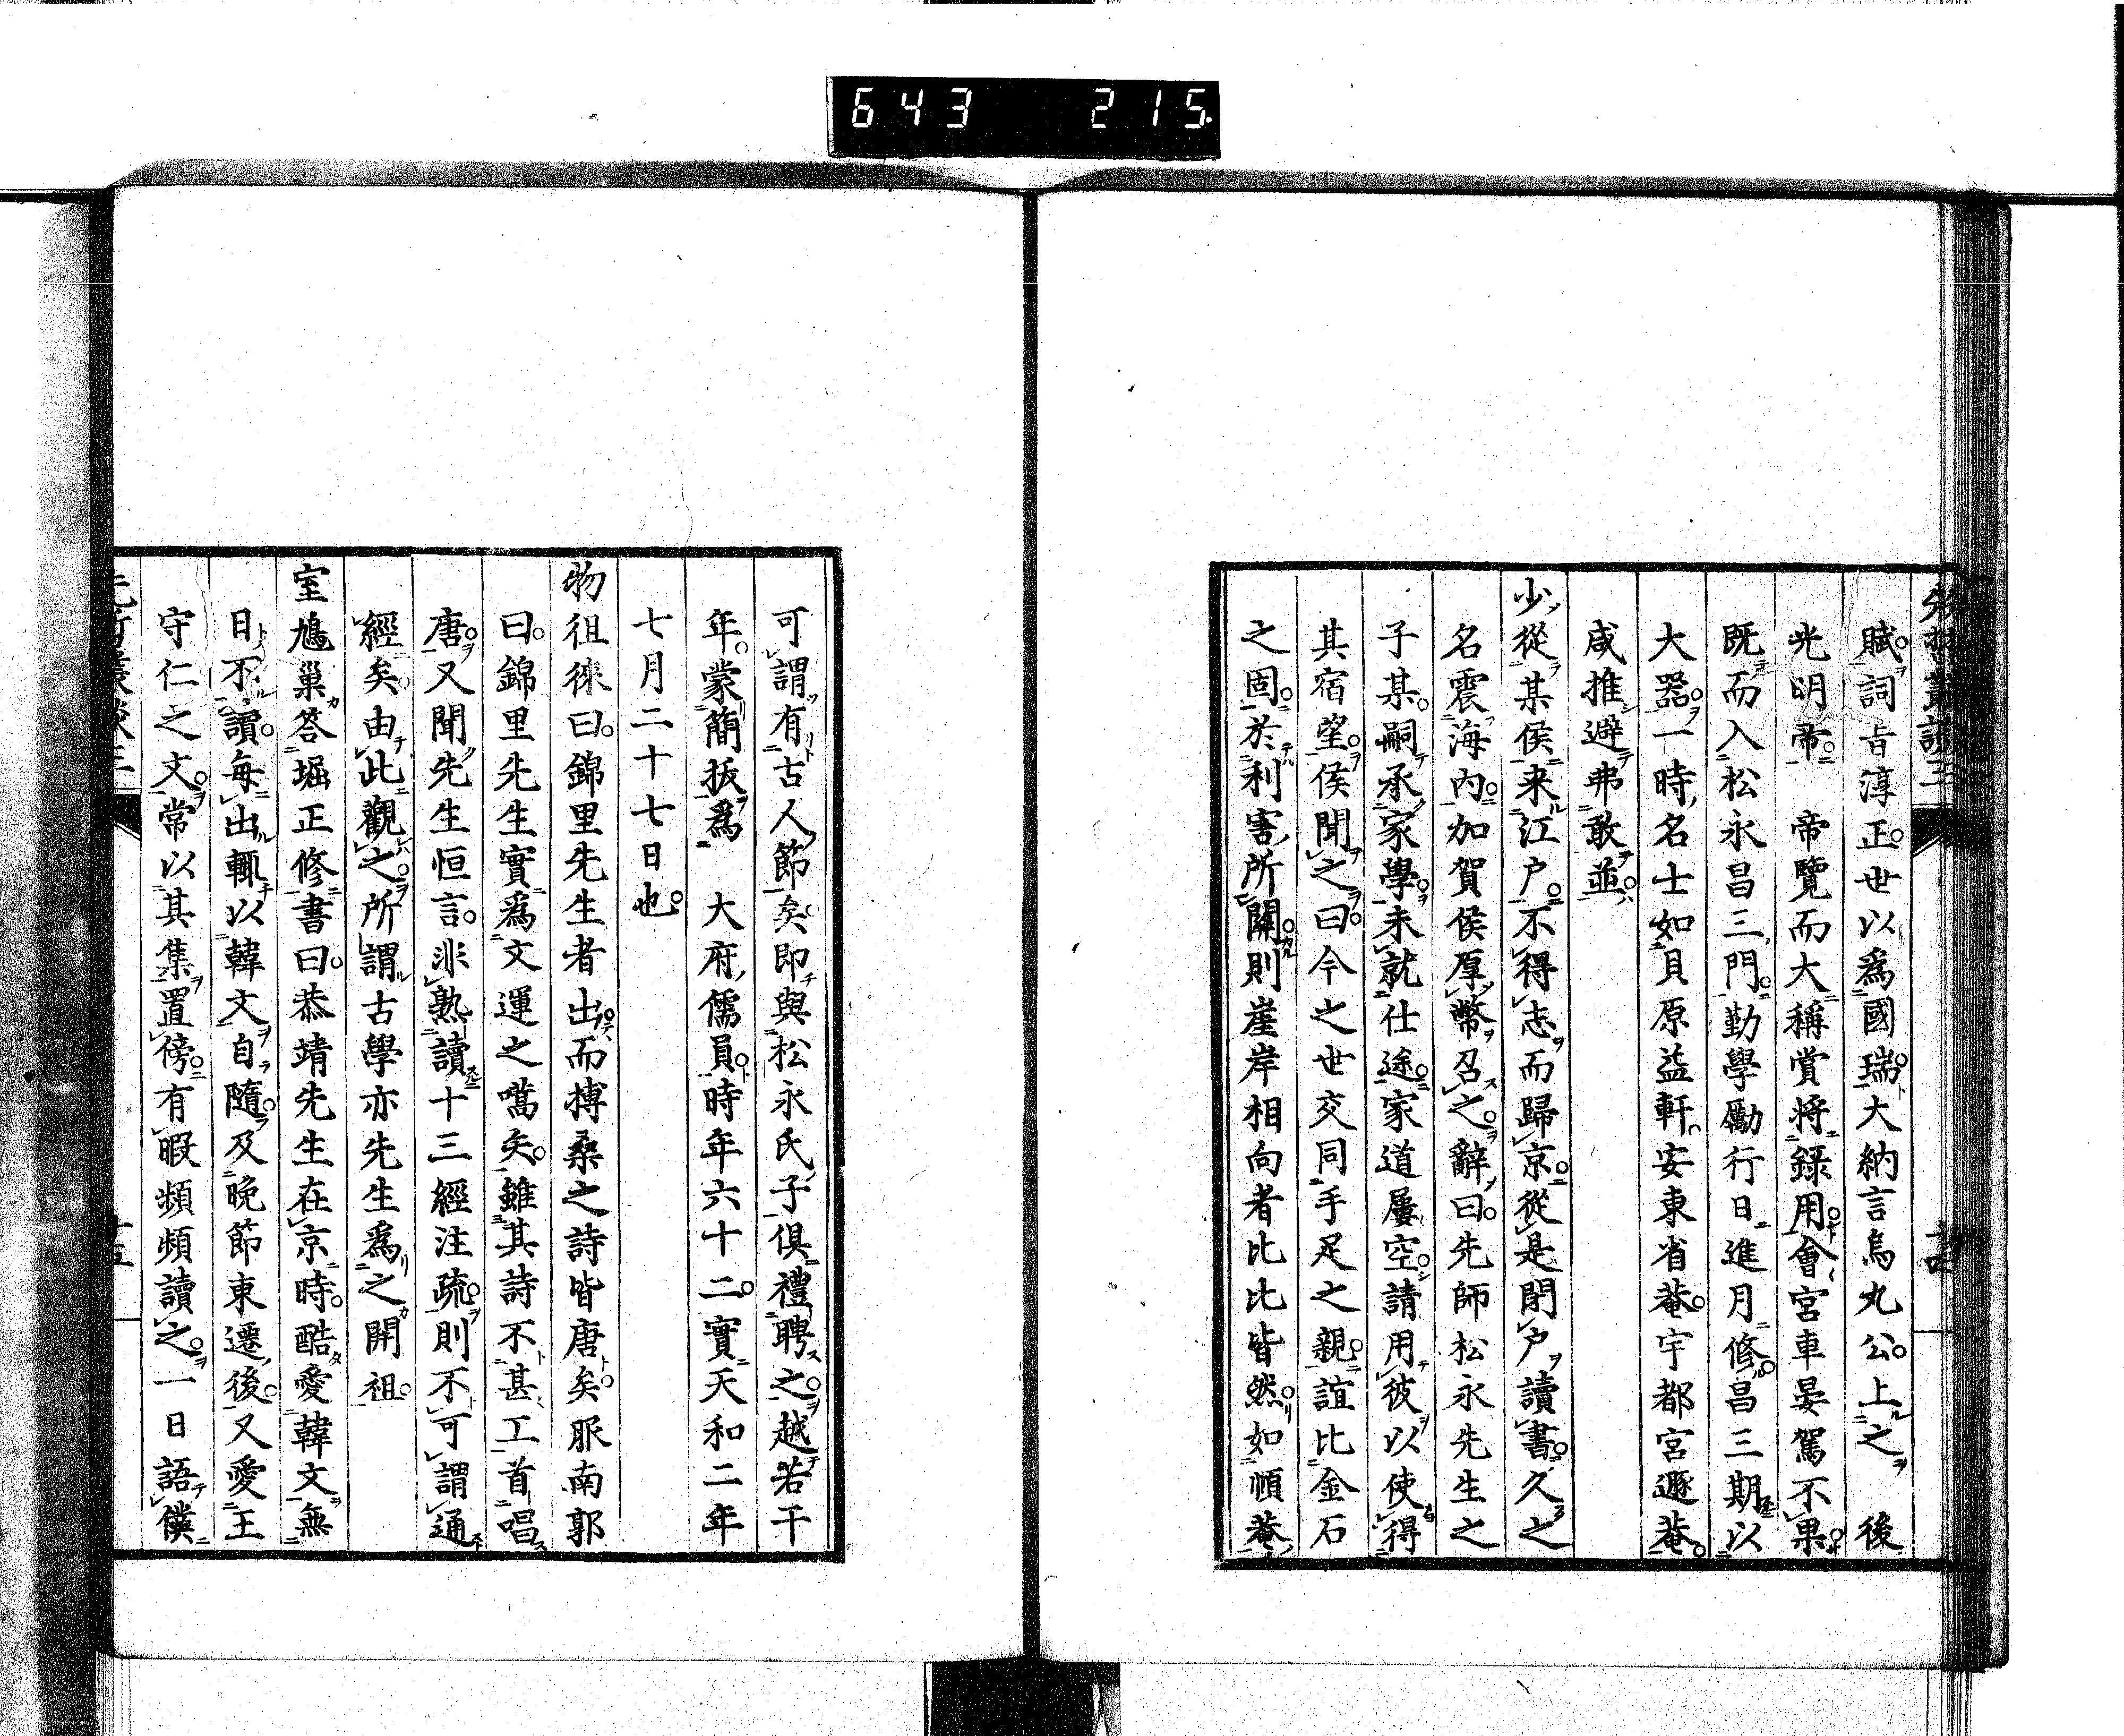 643 215
賦詞旨淳正世以爲國瑞大納言烏丸公上之　後
光明帝　帝覽而大稱賞将録用會宮車晏駕不果
既而入松永昌三門勤學勵行日進月修昌三期以
大器一時名士如貝原益軒安東省菴宇都宮遯菴
咸推避弗敢並
少從某侯来江戸不得志而歸京從是閉戸讀書久之
名震海内加賀侯厚幣召之辭曰先師松永先生之
子某嗣承家學未就仕途家道屢空請用彼以使得
其宿望侯聞之曰今之世交同手足之親誼比金石
之固於利害所關則崖岸相向者比比皆然如順菴
可謂有古人節矣即與松永氏子俱禮聘之越若干
年蒙簡拔爲　大府儒員時年六十二實天和二年
七月二十七日也
物徂徠曰錦里先生者出而搏桑之詩皆唐矣服南郭
曰錦里先生實爲文運之嚆矣雖其詩不甚工首唱
唐又聞先生恒言非熟讀十三經注疏則不可謂通
經矣由此觀之所謂古學亦先生爲之開祖
室鳩巢答堀正修書曰恭靖先生在京時酷愛韓文無
日不讀毎出輒以韓文自隨及晩節東遷後又愛王
守仁之文常以其集置傍有暇頻頻讀之一日語僕